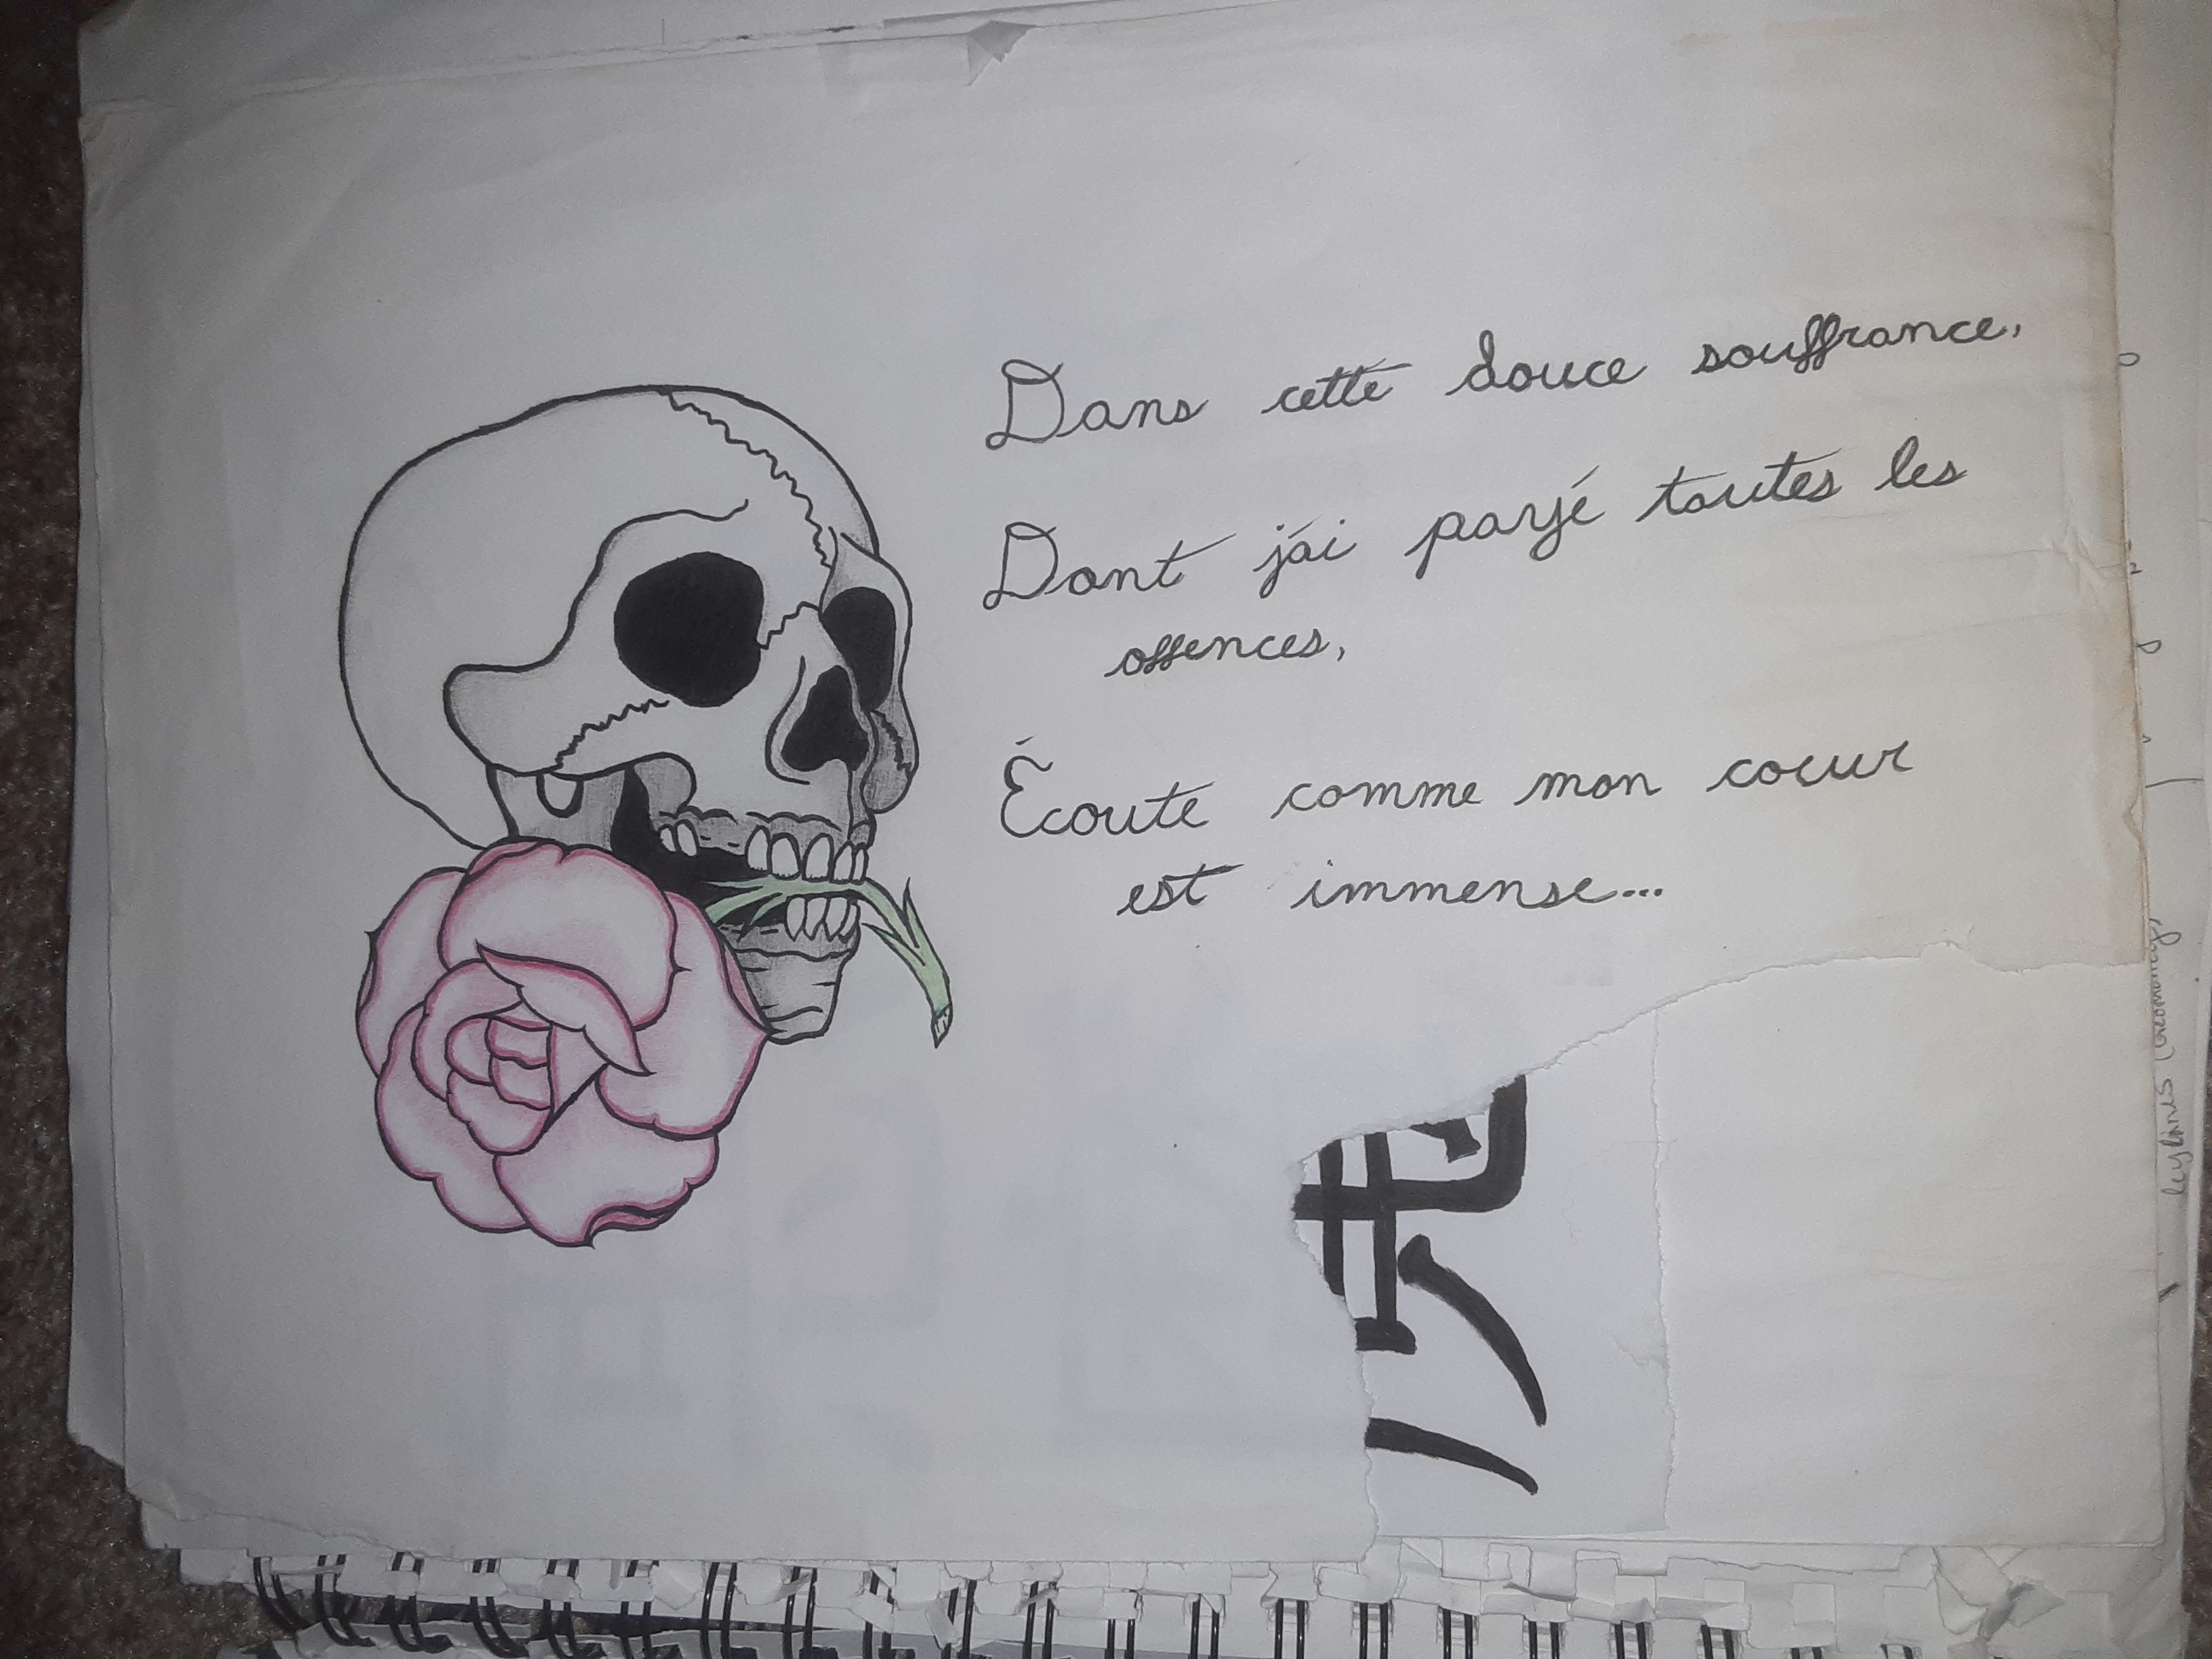 Dans cette douce souffrance,
Dont j'ai payé toutes les
offences,
Écoute comme mon coeur
est immense...
leylines (Geomancy)